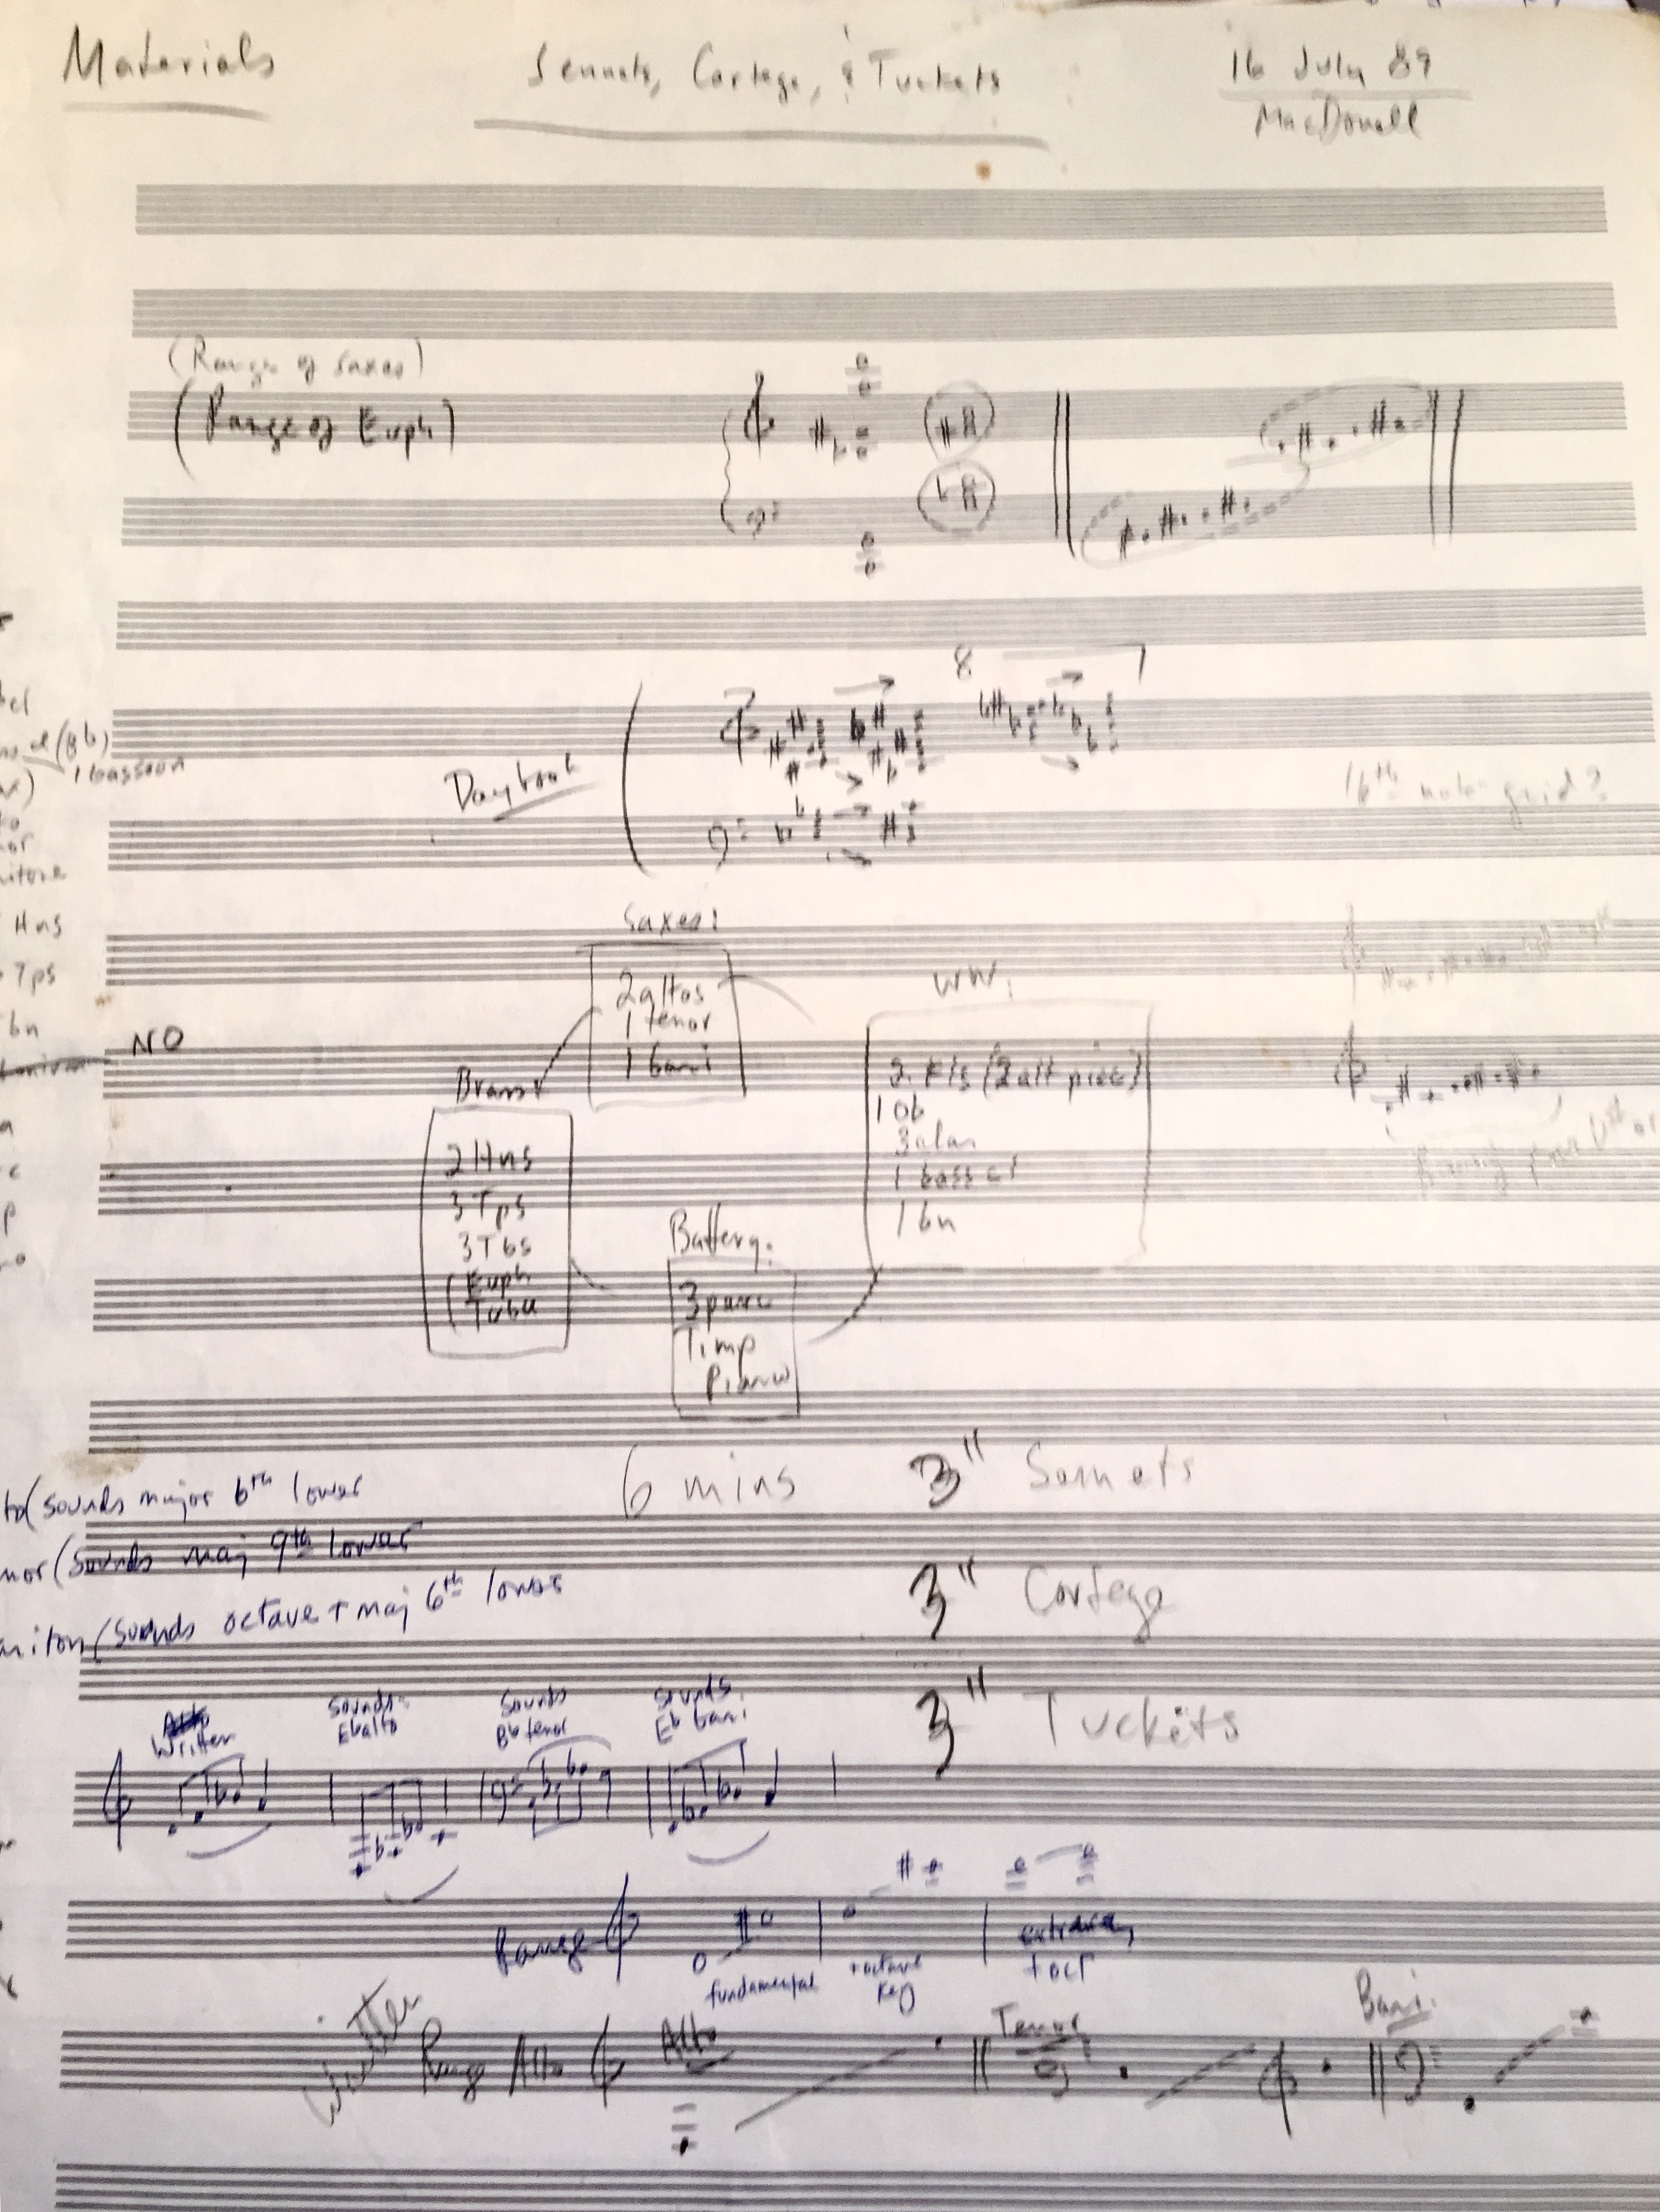 Materials
Sennets, Cortege, & Tuckets
16 July 89
MacDowell
(Range of saxes)
(Range of Euph)
8
Daybook
(Bb)
1 bassoon
16th note grid?
Hns
Tps
bn
NO
Saxes:
2 altos
1 tenor
1 bari
WW:
2 Fls (2 alt picc)
1 ob
3 clar
1 bass cl
1 bn
Brass:
2 Hns
3 Tps
3 Tbs
Euph
Tuba
Battery:
3 perc
Timp
Piano
6 mins
3" Sennets
3" Cortege
3" Tuckets
(sounds major 6th lower
(sounds maj 9th lower
(sounds octave + maj 6th lower
Written
Sounds Eb alto
Sounds Bb tenor
Sounds Eb bari
Range
fundamental
+ octave key
+ oct
Written Range Alto
Alto
Tenor
Bari.